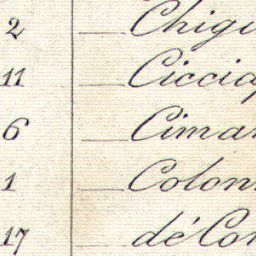 2 Chigi
11 Cicciap
6 Ciman
1 Colon
17 dé Con